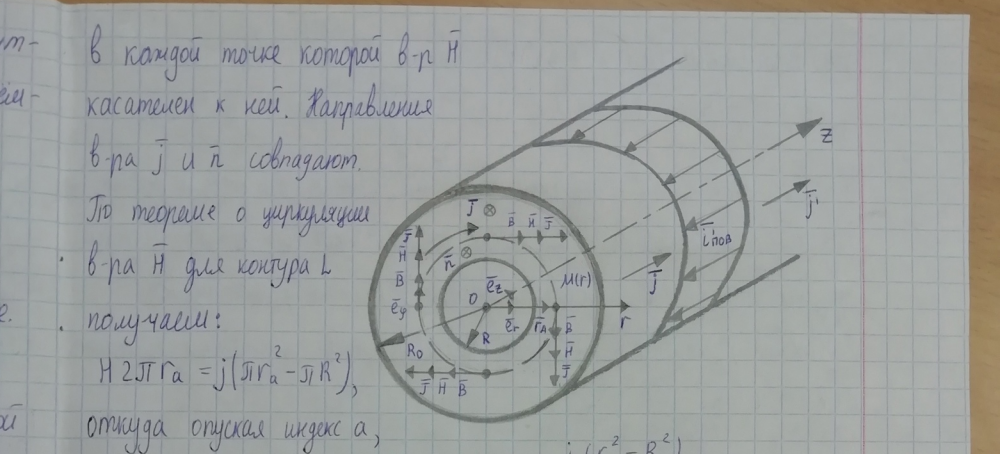 в каждой точке которой в-р H̄
касателен к ней. Направления
в-ра j̄ и n̄ совпадают.
По теореме о циркуляции
в-ра H̄ для контура L
получаем:
H2πrₐ = j(πrₐ² - πR²),
откуда опуская индекс a,
z
j̄'
ī'пов
j̄
J̄ ⊗
B̄ H̄ J̄
n̄ ⊗
J̄
H̄
B̄
ēφ
ēz
μ(r)
O
ēr
r̄A
r
R
R₀
B̄
H̄
J̄
J̄ H̄ B̄